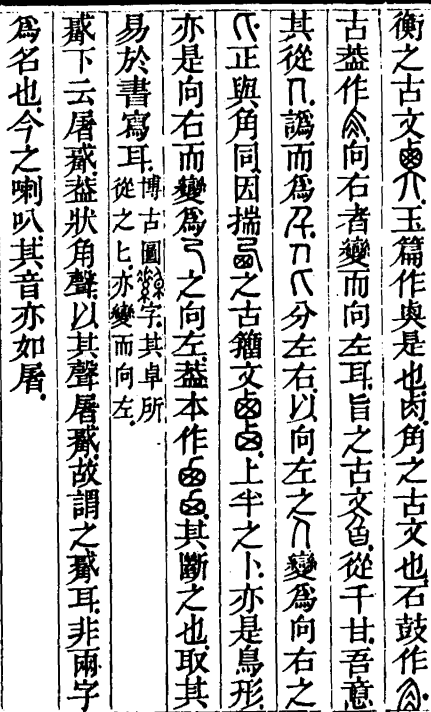 衡之古文玉篇作是也角之古文也石鼓作
古葢作向右者變而向左耳旨之古文從千甘吾意
其從譌而爲分左右以向左之變爲向右之
正與角同因揣之古籀文上半之卜亦是鳥形
亦是向右而變爲之向左葢本作其斷之也取其
易於書寫耳博古圖字其卓所
從之匕亦變而向左
觱下云屠觱葢狀角聲以其聲屠觱故謂之觱耳非兩字
爲名也今之喇叭其音亦如屠